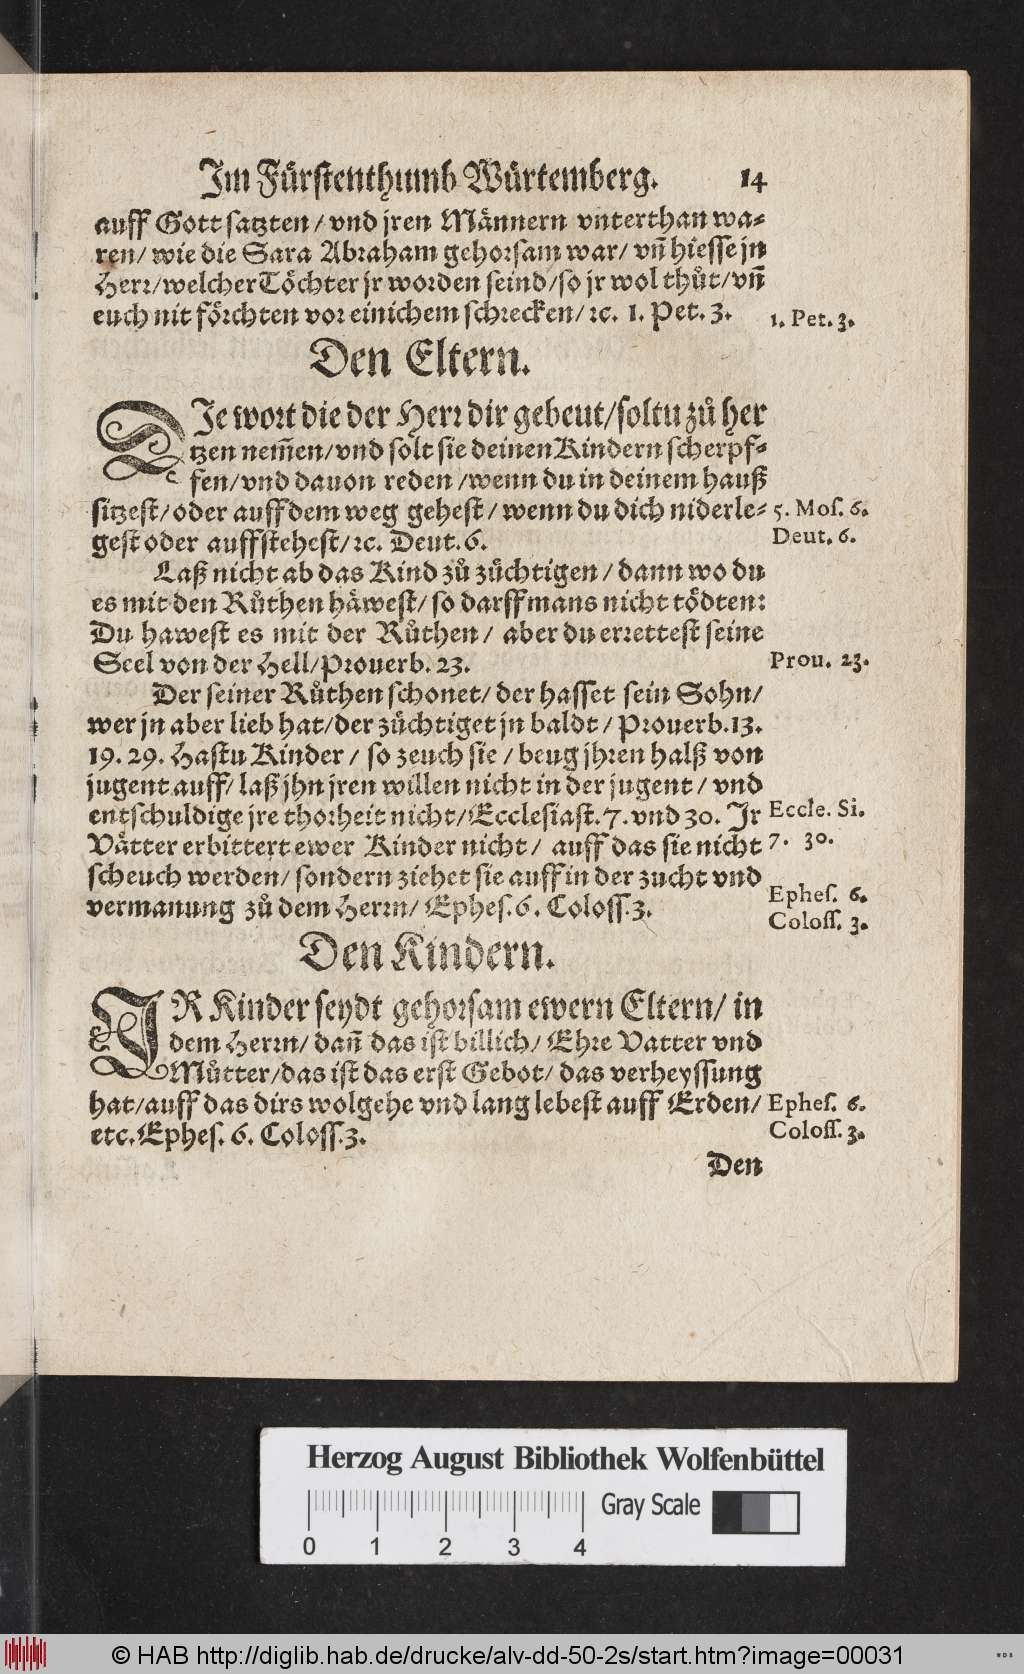 Im Fürstenthumb Würtemberg. 14
auff Gott satzten / vnd jren Männern vnterthan wa-
ren / wie die Sara Abraham gehorsam war / vn̄ hiesse jn
Herr / welcher Töchter jr worden seind / so jr wol thůt / vn̄
euch nit förchten vor einichem schrecken / ꝛc. 1. Pet. 3.
1. Pet. 3.
Den Eltern.
DIe wort die der Herr dir gebeut / soltu zů her
tzen nem̄en / vnd solt sie deinen Kindern scherpf-
fen / vnd dauon reden / wenn du in deinem hauß
sitzest / oder auff dem weg gehest / wenn du dich niderle-
5. Mos. 6.
gest oder auffstehest / ꝛc. Deut. 6.
Deut. 6.
Laß nicht ab das Kind zů züchtigen / dann wo du
es mit den Růthen häwest / so darff mans nicht tödten:
Du hawest es mit der Růthen / aber du errettest seine
Seel von der Hell / Prouerb. 23.
Prou. 23.
Der seiner Růthen schonet / der hasset sein Sohn /
wer jn aber lieb hat / der züchtiget jn baldt / Prouerb. 13.
19. 29. Hastu Kinder / so zeuch sie / beug jhren halß von
jugent auff / laß jhn jren willen nicht in der jugent / vnd
entschuldige jre thorheit nicht / Ecclesiast. 7. vnd 30. Ir
Eccle. Si.
Vätter erbittert ewer Kinder nicht / auff das sie nicht
7. 30.
scheuch werden / sondern ziehet sie auff in der zucht vnd
vermanung zů dem Herrn / Ephes. 6. Coloss. 3.
Ephes. 6.
Coloss. 3.
Den Kindern.
IR Kinder seydt gehorsam ewern Eltern / in
dem Herrn / dan̄ das ist billich / Ehre Vatter vnd
Můtter / das ist das erst Gebot / das verheyssung
hat / auff das dirs wolgehe vnd lang lebest auff Erden /
Ephes. 6.
etc. Ephes. 6. Coloss. 3.
Coloss. 3.
Den
Herzog August Bibliothek Wolfenbüttel
Gray Scale
0 1 2 3 4
© HAB http://diglib.hab.de/drucke/alv-dd-50-2s/start.htm?image=00031